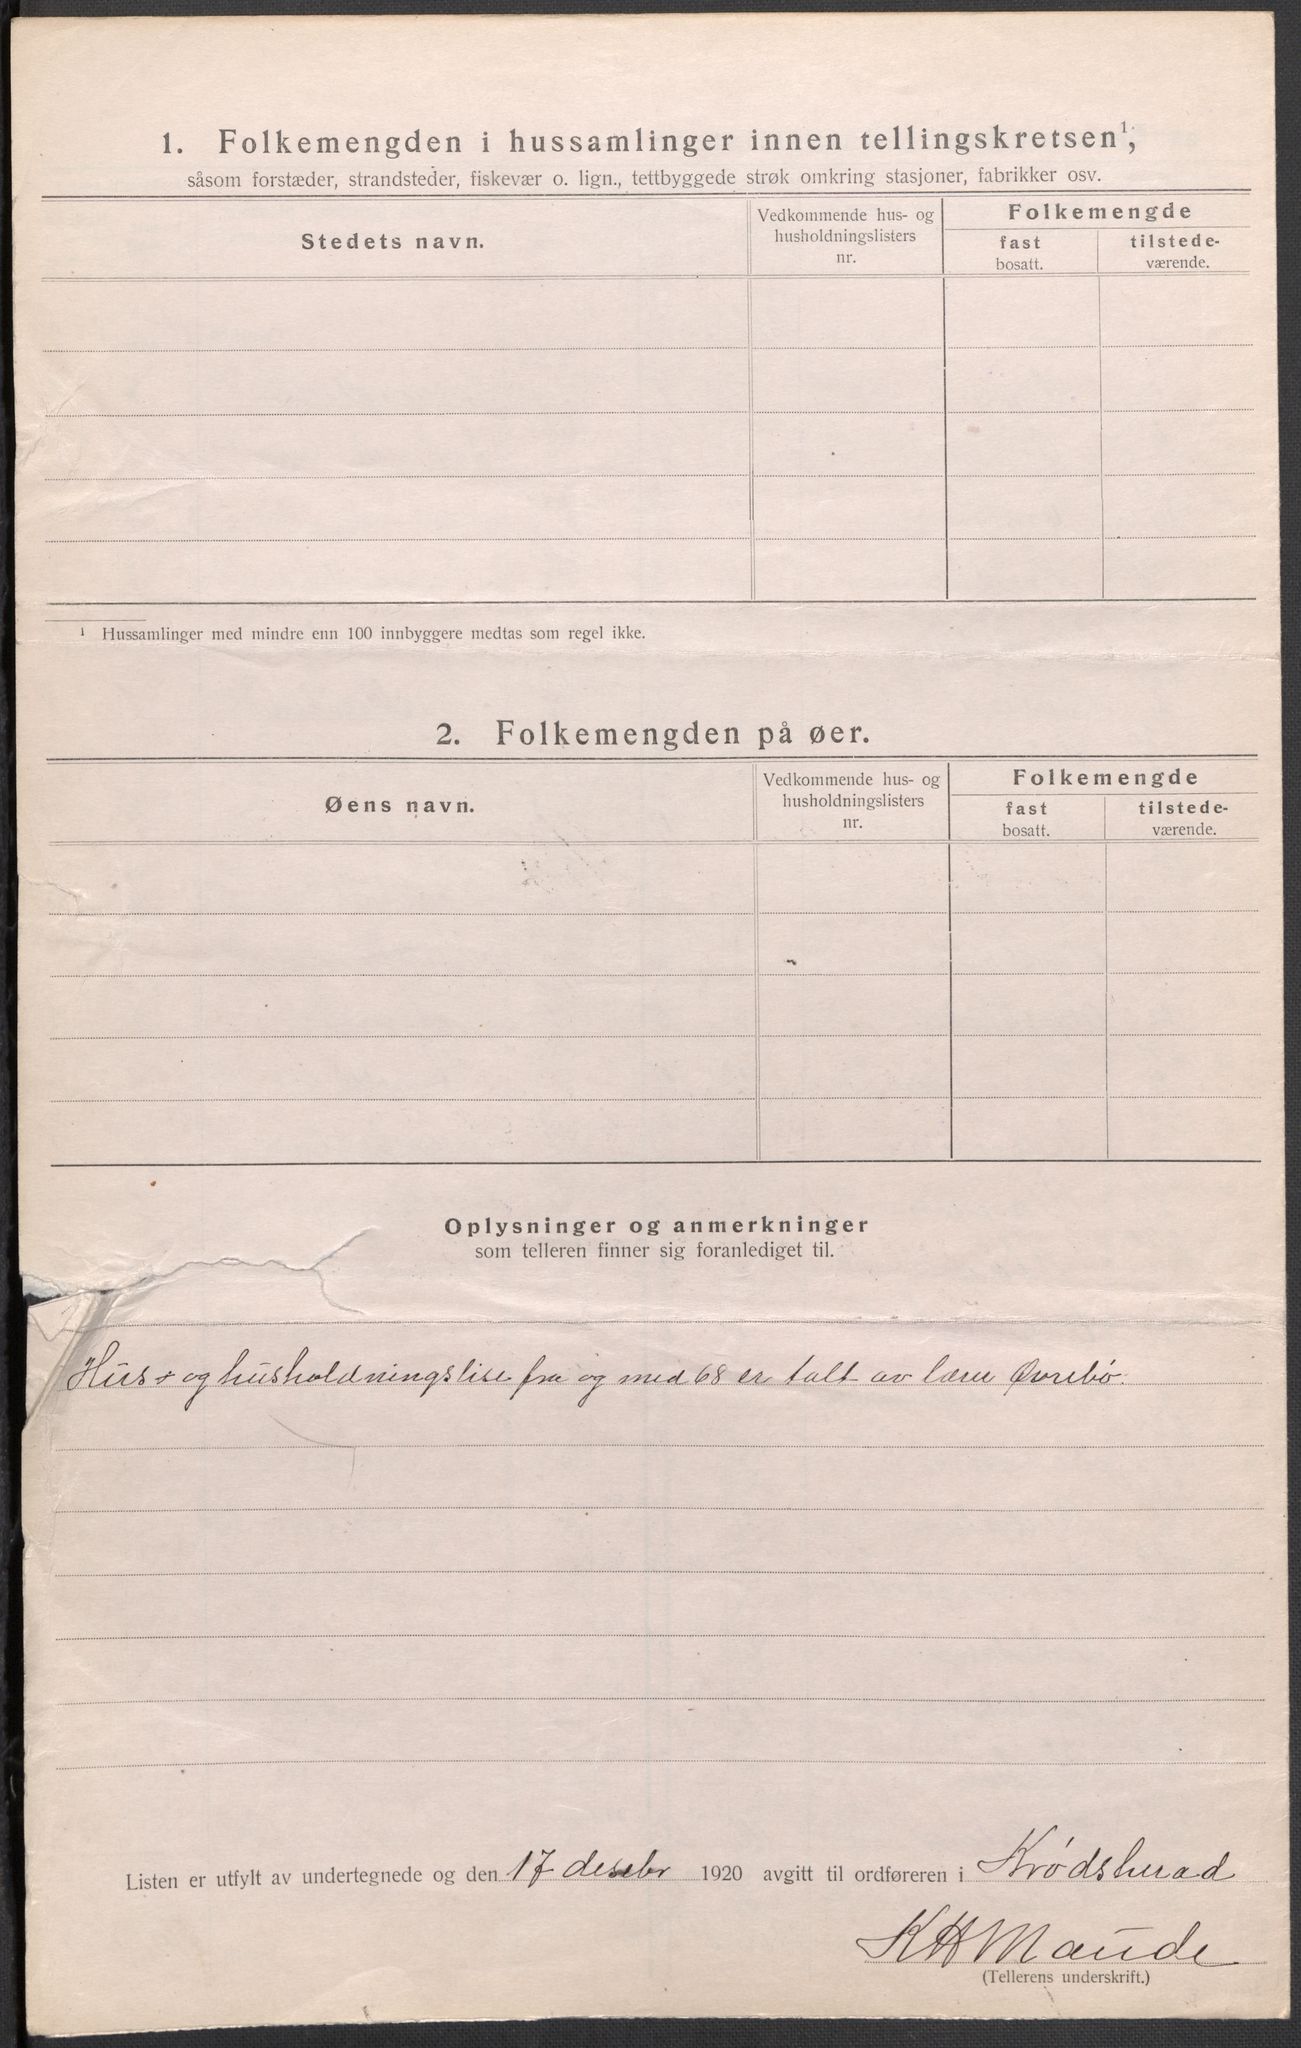 1. Folkemengden i hussamlinger innen tellingskretsen¹,
såsom forstæder, strandsteder, fiskevær o. lign., tettbyggede strøk omkring stasjoner, fabrikker osv.
Stedets navn.
Vedkommende hus- og
husholdningslisters
nr.
Folkemengde
fast
bosatt.
tilstede-
værende.
¹ Hussamlinger med mindre enn 100 innbyggere medtas som regel ikke.
2. Folkemengden på øer.
Øens navn.
Vedkommende hus- og
husholdningslisters
nr.
Folkemengde
fast
bosatt.
tilstede-
værende.
Oplysninger og anmerkninger
som telleren finner sig foranlediget til.
Hus- og husholdningslise fra og med 68 er talt av lærer Øvrebø.
Listen er utfylt av undertegnede og den 17 desebr 1920 avgitt til ordføreren i Krødsherad
KH Maude
(Tellerens underskrift.)